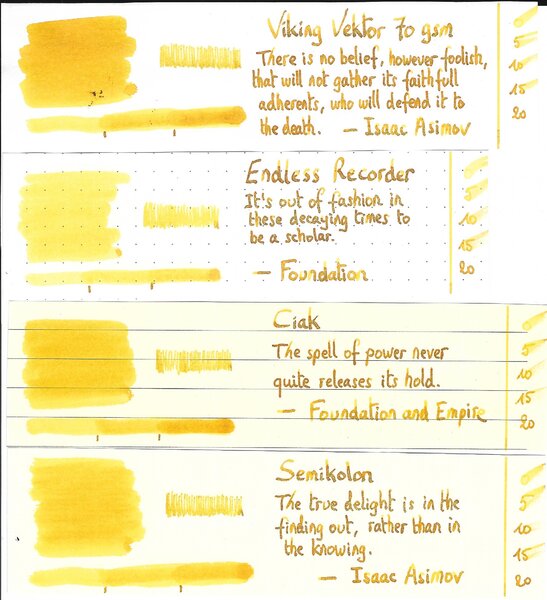 Viking Vektor 70 gsm
There is no belief, however foolish,
that will not gather its faithfull
adherents, who will defend it to
the death. — Isaac Asimov
5
10
15
20
Endless Recorder
It's out of fashion in
these decaying times to
be a scholar.
— Foundation
5
10
15
20
Ciak
The spell of power never
quite releases its hold.
— Foundation and Empire
5
10
15
20
Semikolon
The true delight is in the
finding out, rather than in
the knowing.
— Isaac Asimov
5
10
15
20